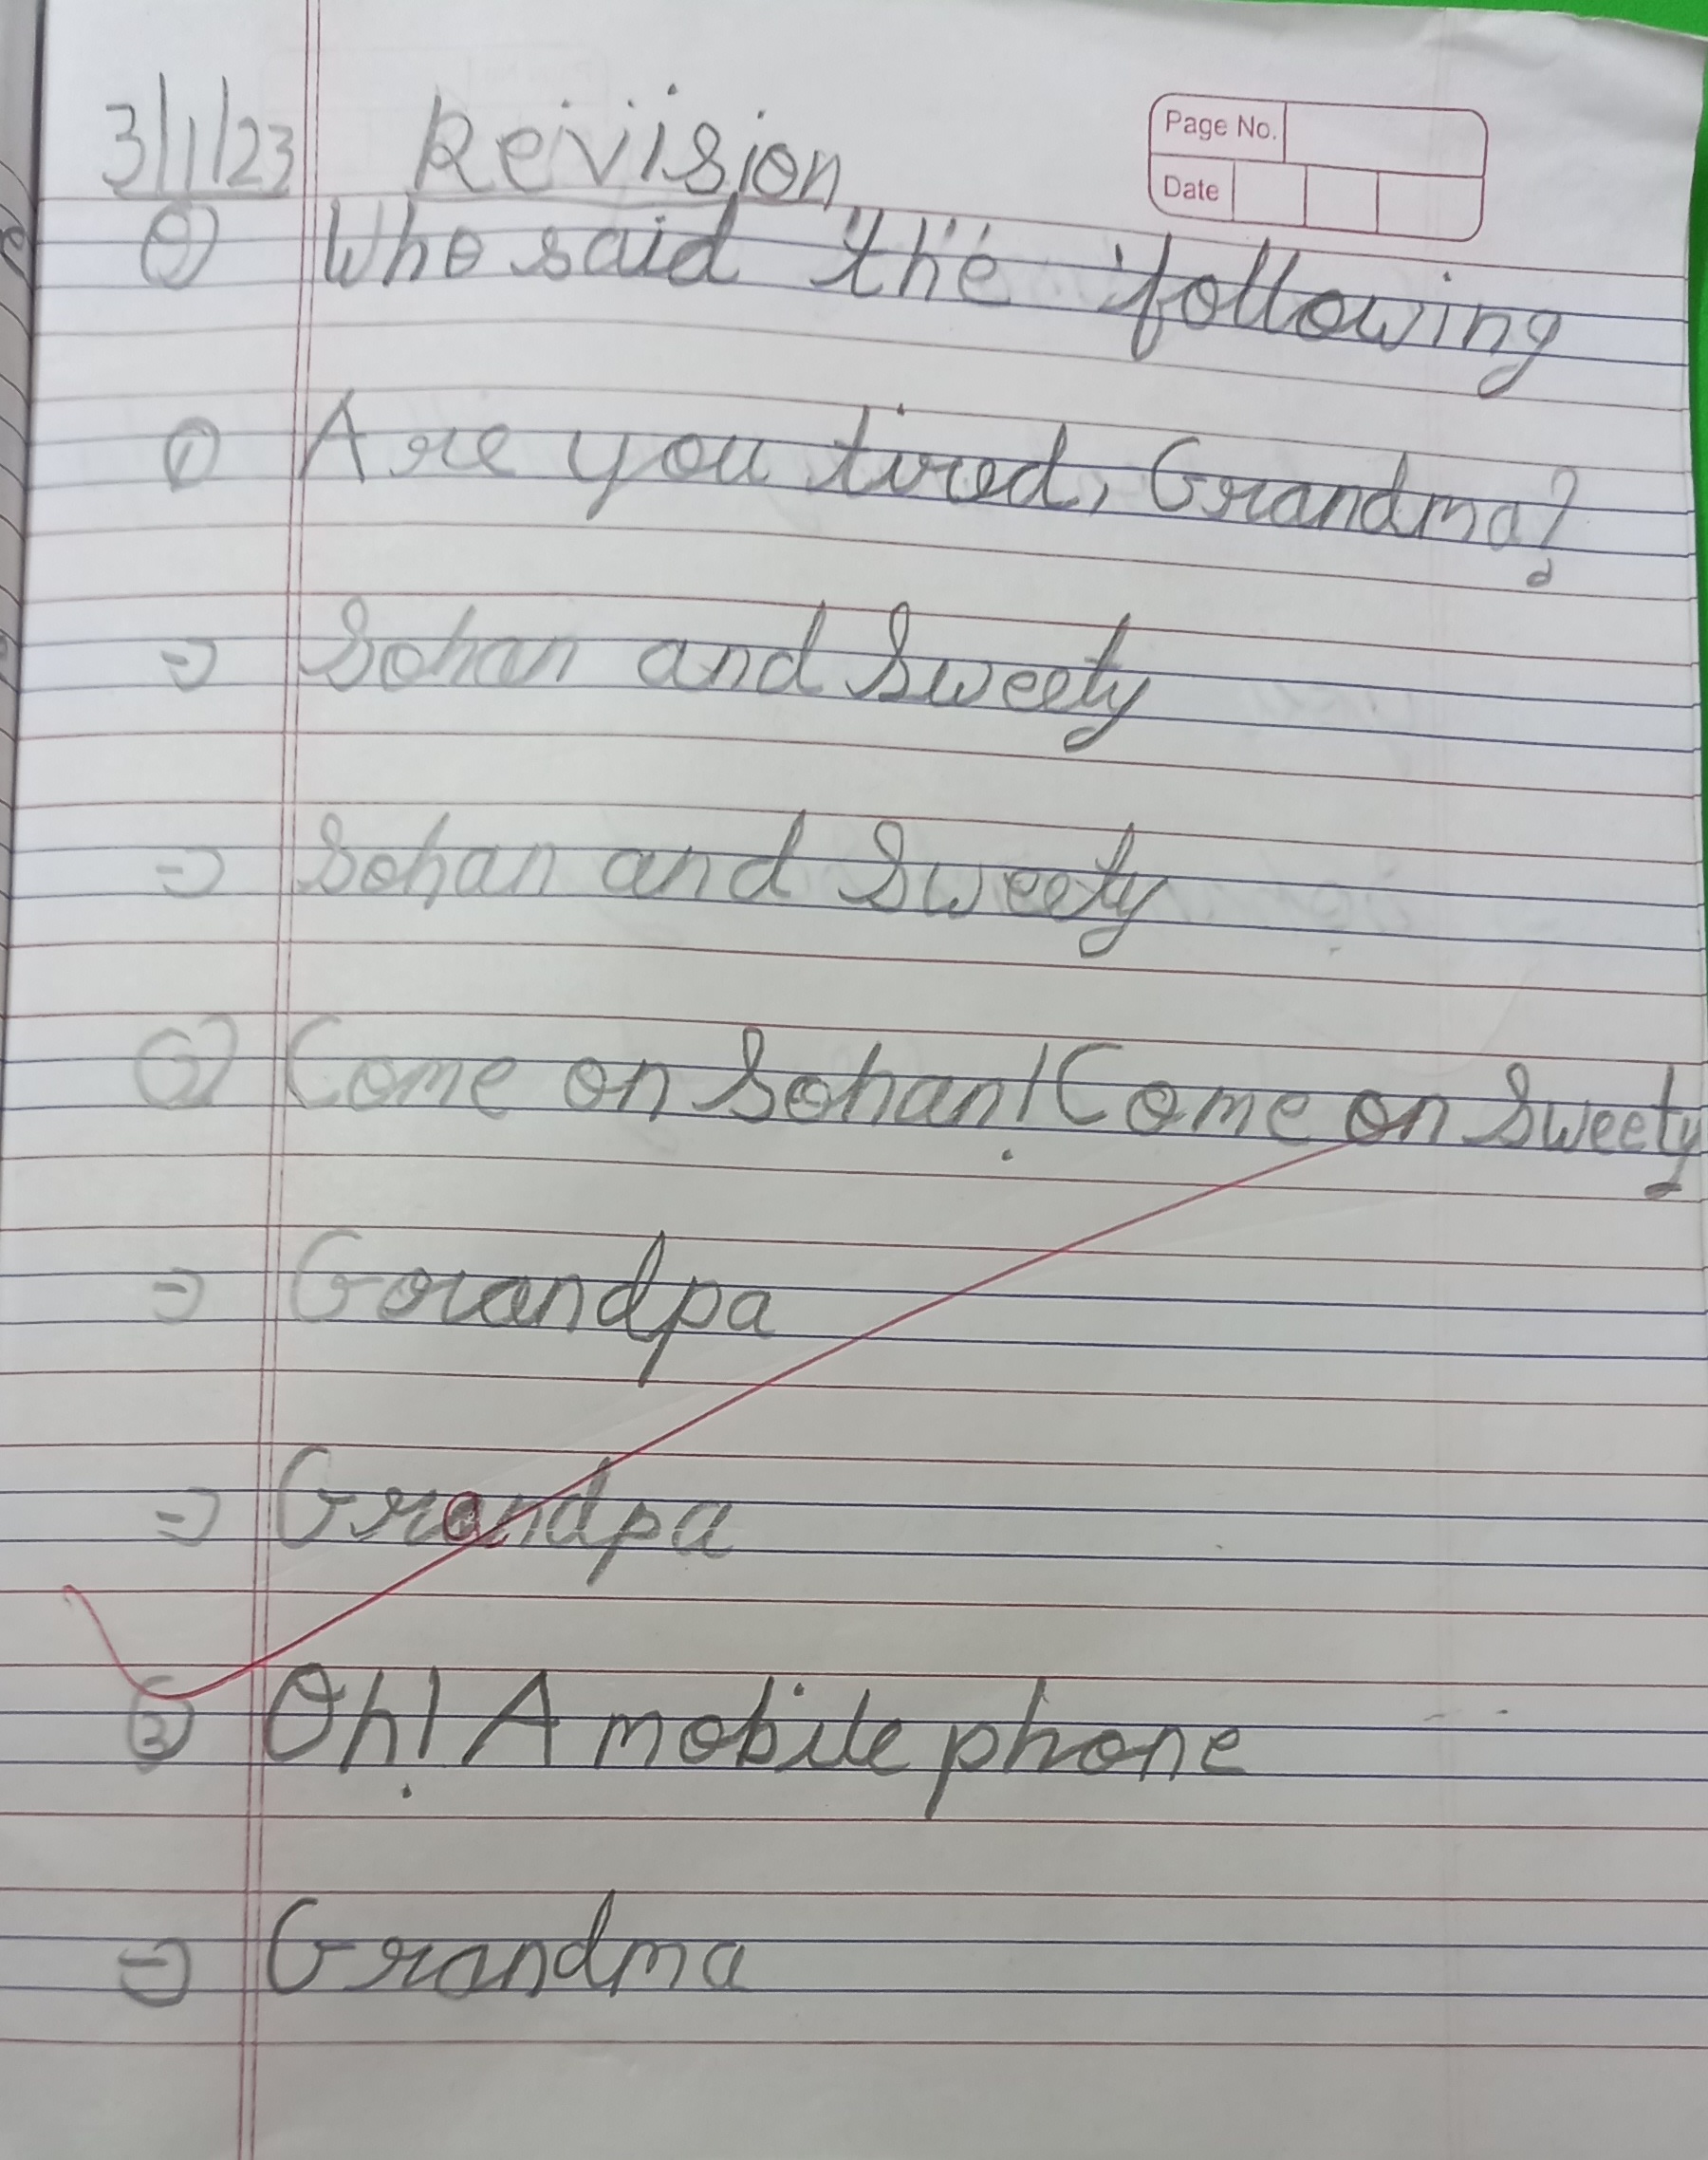 3/1/23 Revision
Page No.
Date
Who said the following
① Are you tired, Grandma?
⇒ Sohan and Sweety
⇒ Sohan and Sweety
② Come on Sohan! Come on Sweety
⇒ Grandpa
⇒ Grandpa
③ Oh! A mobile phone
⇒ Grandma